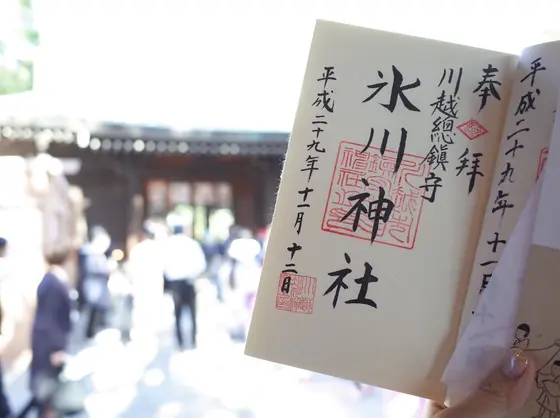 奉拝
川越總鎮守
氷川神社
平成二十九年十一月十二日
平成二十九年十一